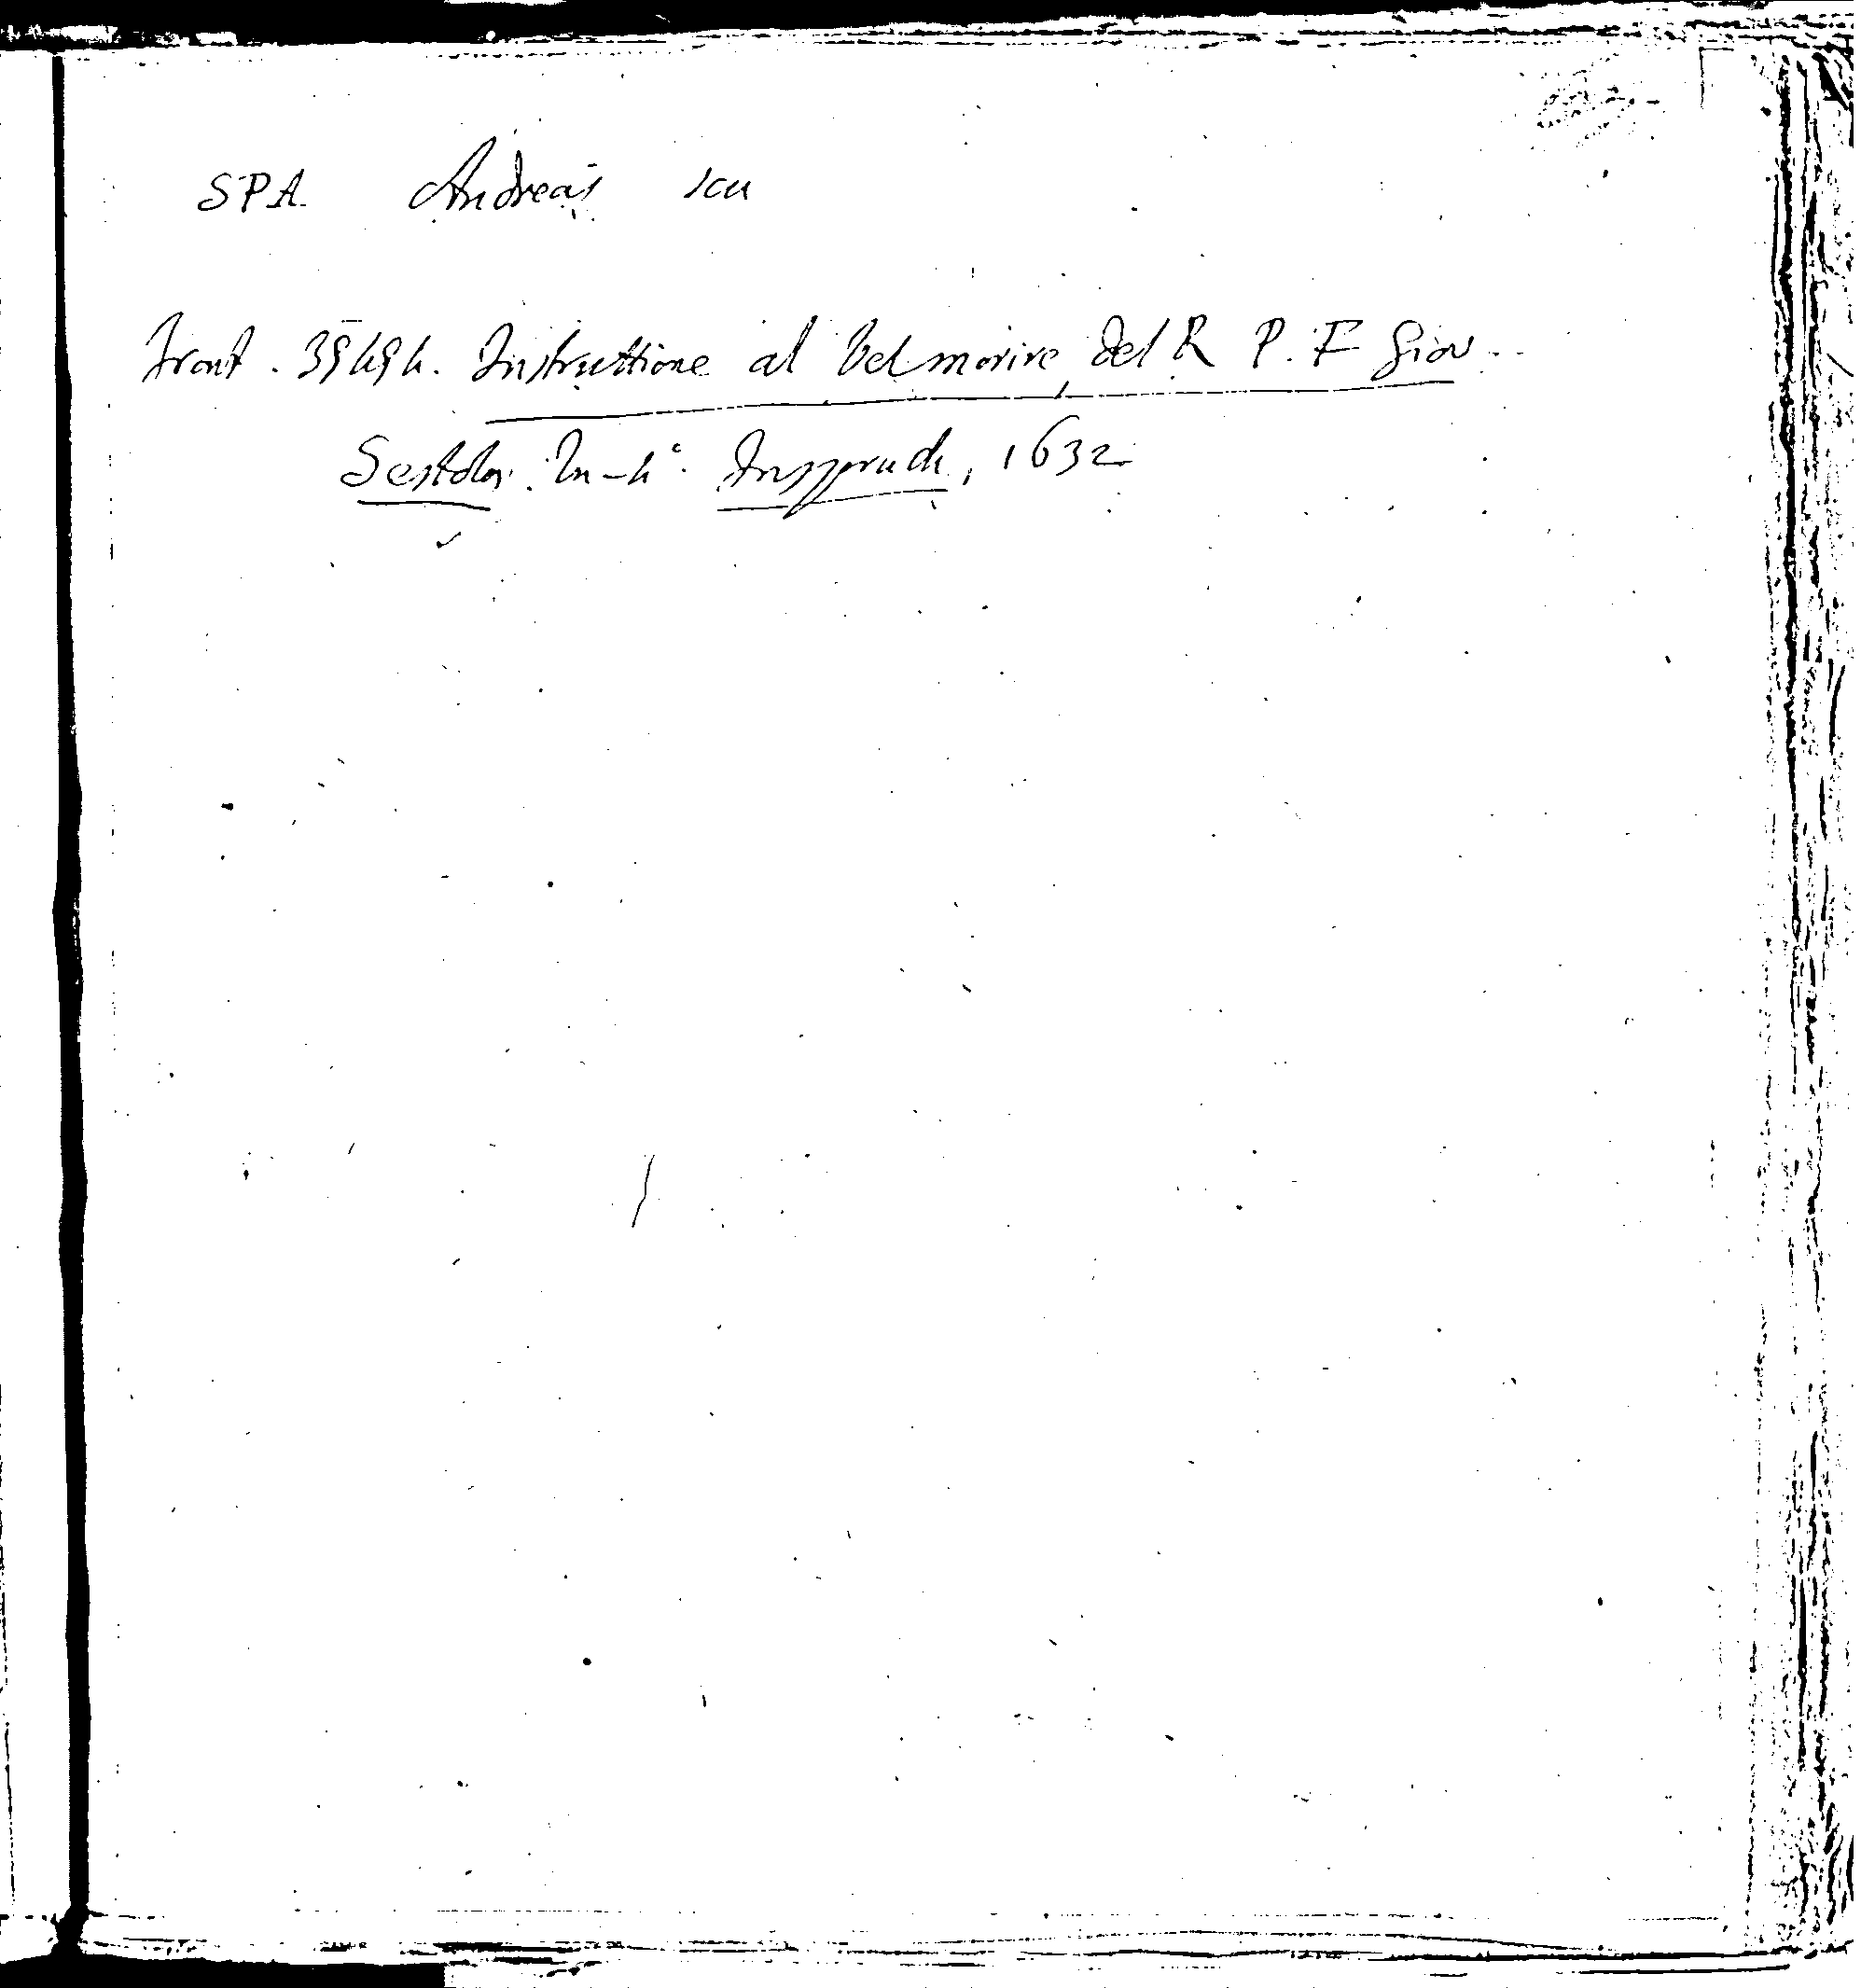 SPA. Andreas scu
Front. 39494. Instruttione al bel morire del R P. F Giov.
Sestola. In-4° Insspruch, 1632